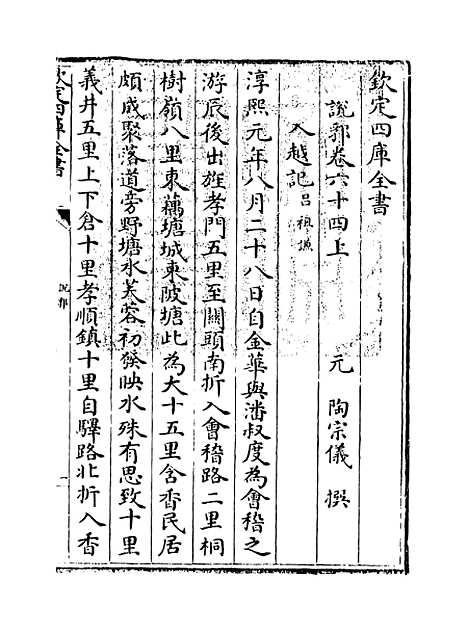 欽定四庫全書
說郛卷六十四上
元 陶宗儀 撰
入越記 呂祖謙
淳熙元年八月二十八日自金華與潘叔度為會稽之
游辰後出旌孝門五里至關頭南折入會稽路二里桐
樹嶺八里東藕塘城東陂塘此為大十五里含香民居
頗成聚落道旁野塘水芙蓉初發映水殊有思致十里
義井五里上下倉十里孝順鎮十里自驛路北折入香
欽定四庫全書
說郛
一